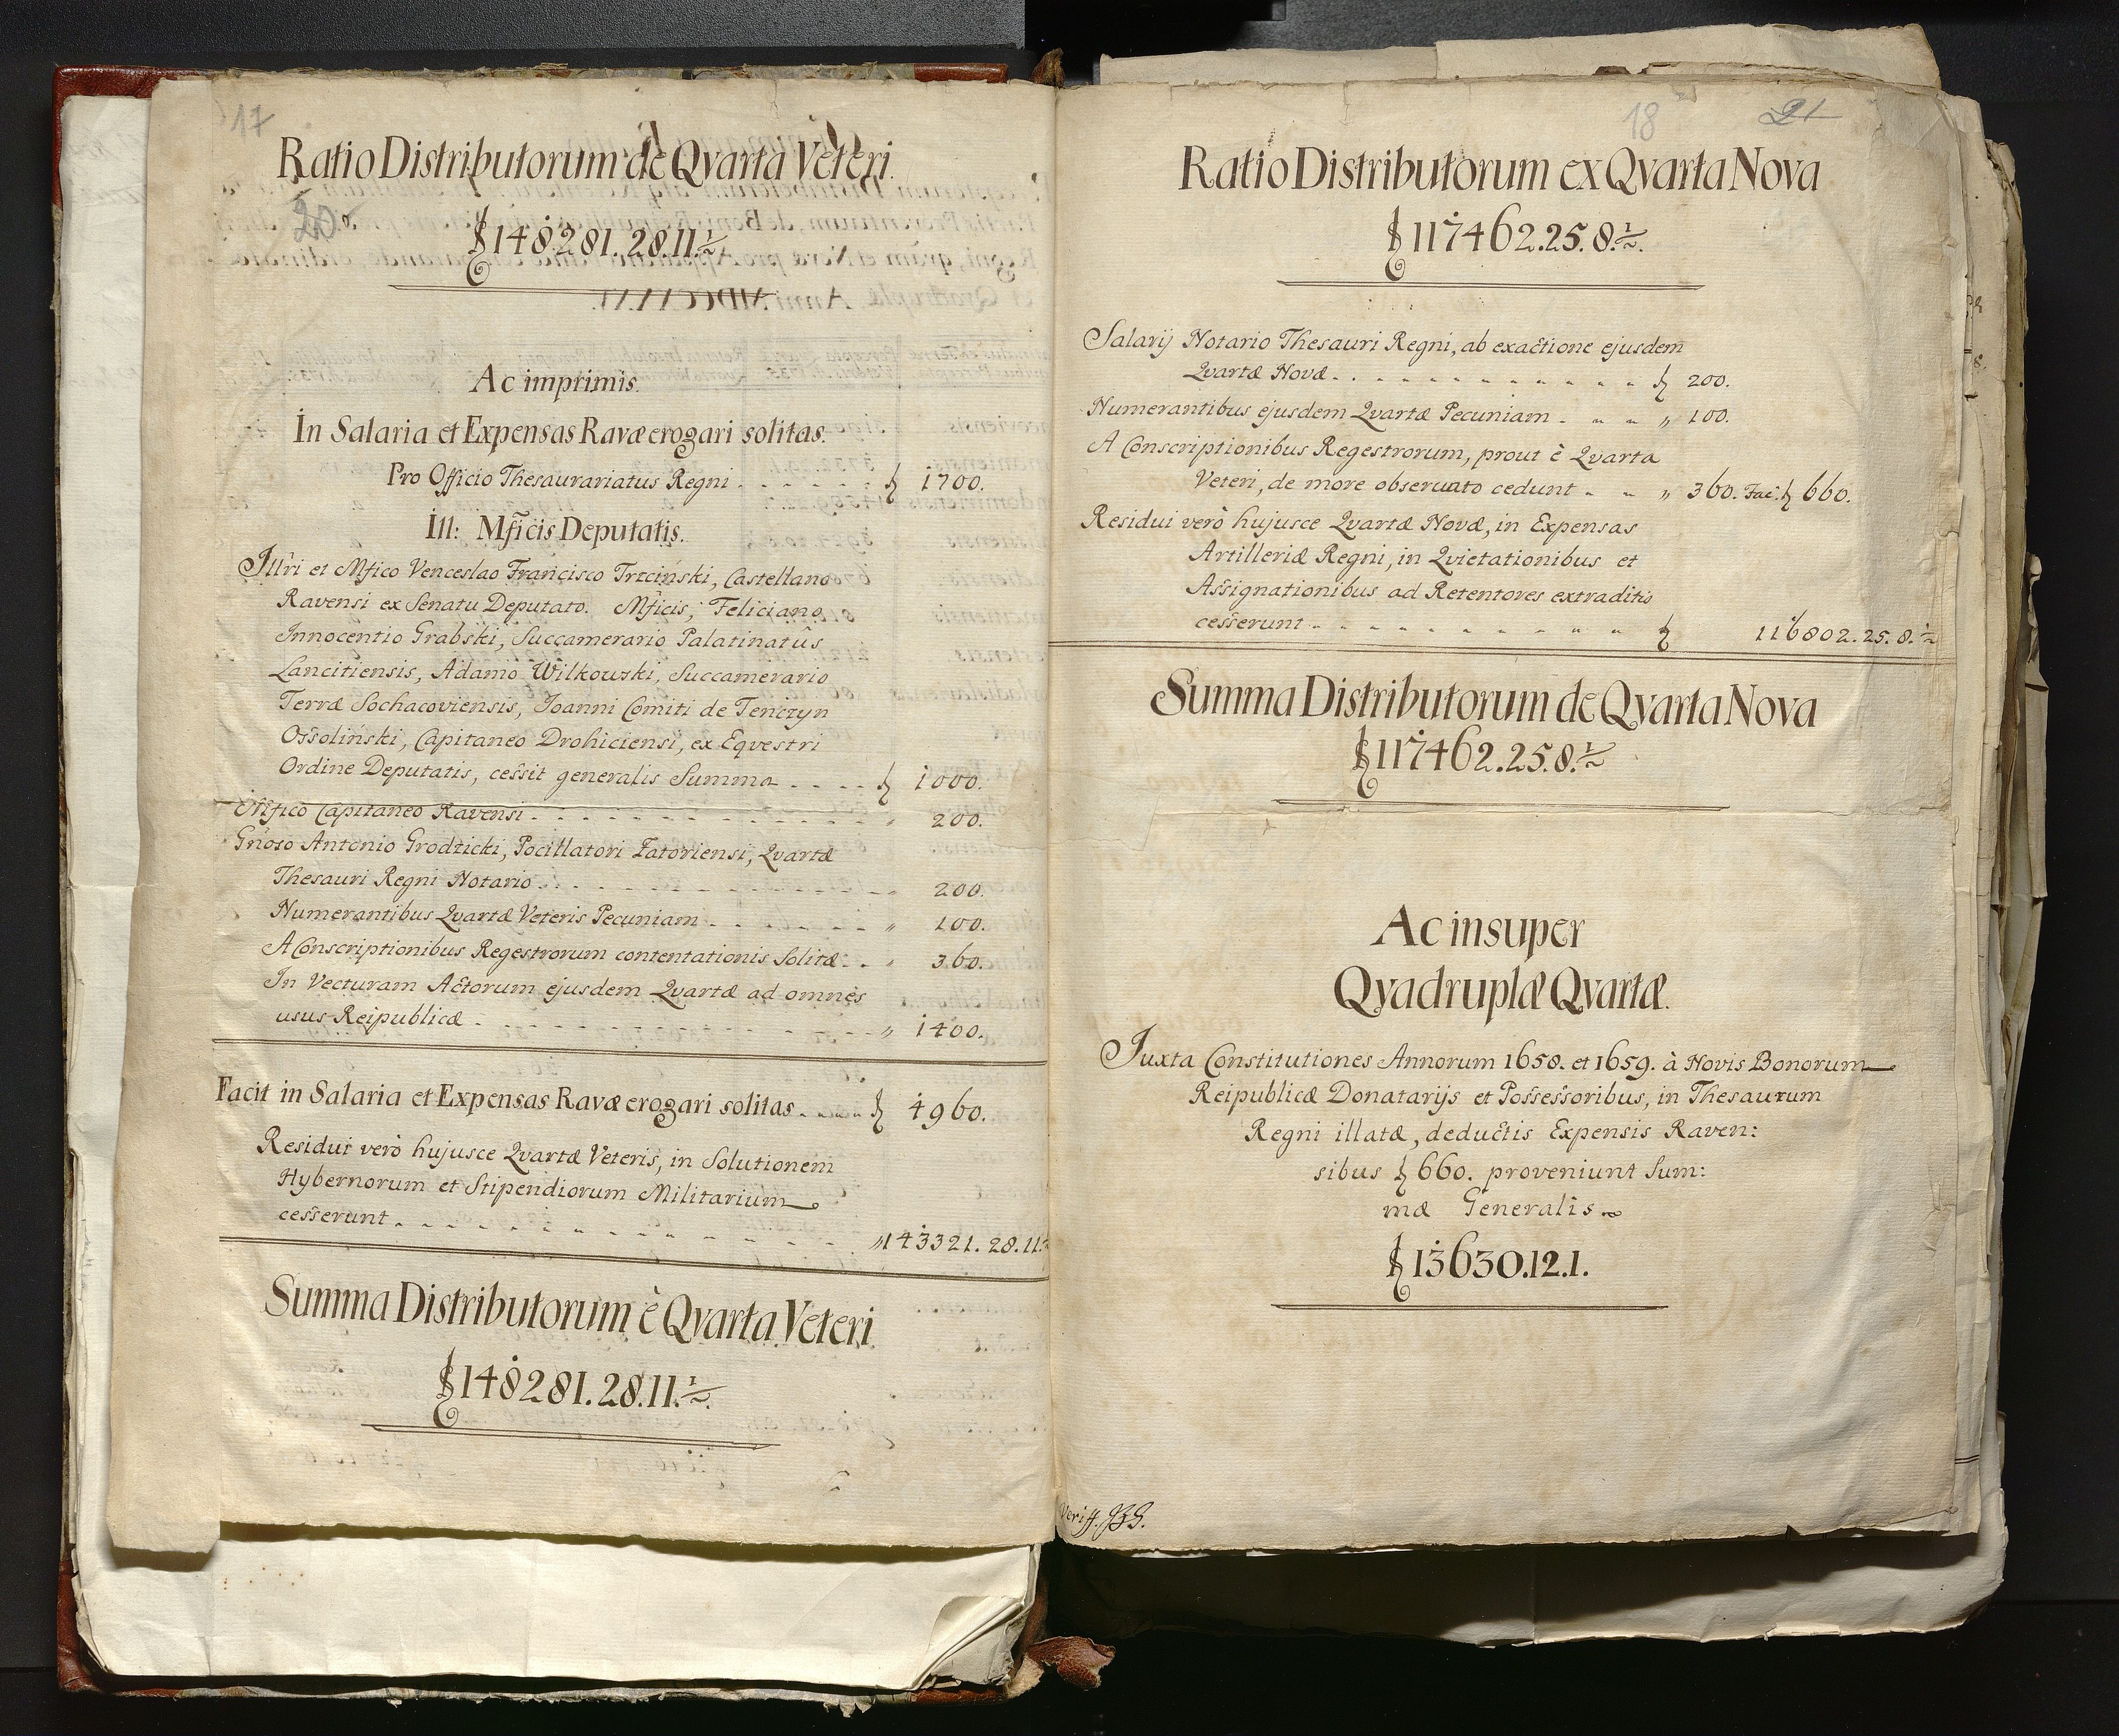 17
Ratio Distributorum de Qvarta Veteri.
20.
ƒ 148281.28.11.½.
Ac imprimis.
In Salaria et Expensas Ravæ erogari solitas.
Pro Officio Thesaurariatus Regni . . . . . . ƒ 1700.
Ill: Mficis Deputatis.
Illri et Mfico Venceslao Francisco Trzcinski, Castellano
Ravensi ex Senatu Deputato. Mficis, Feliciano
Innocentio Grabski, Succamerario Palatinatûs
Lancitiensis, Adamo Wilkowski, Succamerario
Terræ Sochacoviensis, Joanni Comiti de Tenczyn
Ossoliński, Capitaneo Drohiciensi, ex Eqvestri
Ordine Deputatis, cessit generalis Summa . . . . ƒ 1000.
Mfico Capitaneo Ravensi . . . . . . . . . . . . . " 200.
Gnoso Antonio Grodzicki, Pocillatori Zatoriensi, Qvartæ
Thesauri Regni Notario . . . . . . . . . . . . . " 200.
Numerantibus Qvartæ Veteris Pecuniam . . . . . . " 100.
A Conscriptionibus Regestrorum contentationis Solitæ . . " 360.
In Vecturam Actorum ejusdem Qvartæ ad omnes
usus Reipublicæ . . . . . . . . . . . . . . . " 1400.
Facit in Salaria et Expensas Ravæ erogari solitas . . . . ƒ 4960.
Residui verò hujusce Qvartæ Veteris, in Solutionem
Hybernorum et Stipendiorum Militarium
cesserunt . . . . . . . . . . . . . " 143321.28.11.½
Summa Distributorum è Qvarta Veteri.
ƒ 148281.28.11.½.
18
21
Ratio Distributorum ex Qvarta Nova
ƒ 117462.25.8.½.
Salarij Notario Thesauri Regni, ab exactione ejusdem
Qvartæ Novæ . . . . . . . . . . . . . ƒ 200.
Numerantibus ejusdem Qvartæ Pecuniam . . . " 100.
A Conscriptionibus Regestrorum, prout è Qvarta
Veteri, de more observato cedunt . . . " 360. Fac: ƒ 660.
Residui verò hujusce Qvartæ Novæ, in Expensas
Artilleriæ Regni, in Qvietationibus et
Assignationibus ad Retentores extraditis
cesserunt . . . . . . . . . . . ƒ 116802.25.8.½
Summa Distributorum de Qvarta Nova
ƒ 117462.25.8.½
Ac insuper
Qvadruplæ Qvartæ.
Juxta Constitutiones Annorum 1658. et 1659. à Novis Bonorum
Reipublicæ Donatarijs et Possessoribus, in Thesaurum
Regni illatæ, deductis Expensis Raven:
sibus ƒ 660. proveniunt Sum:
mæ Generalis
ƒ 13630.12.1.